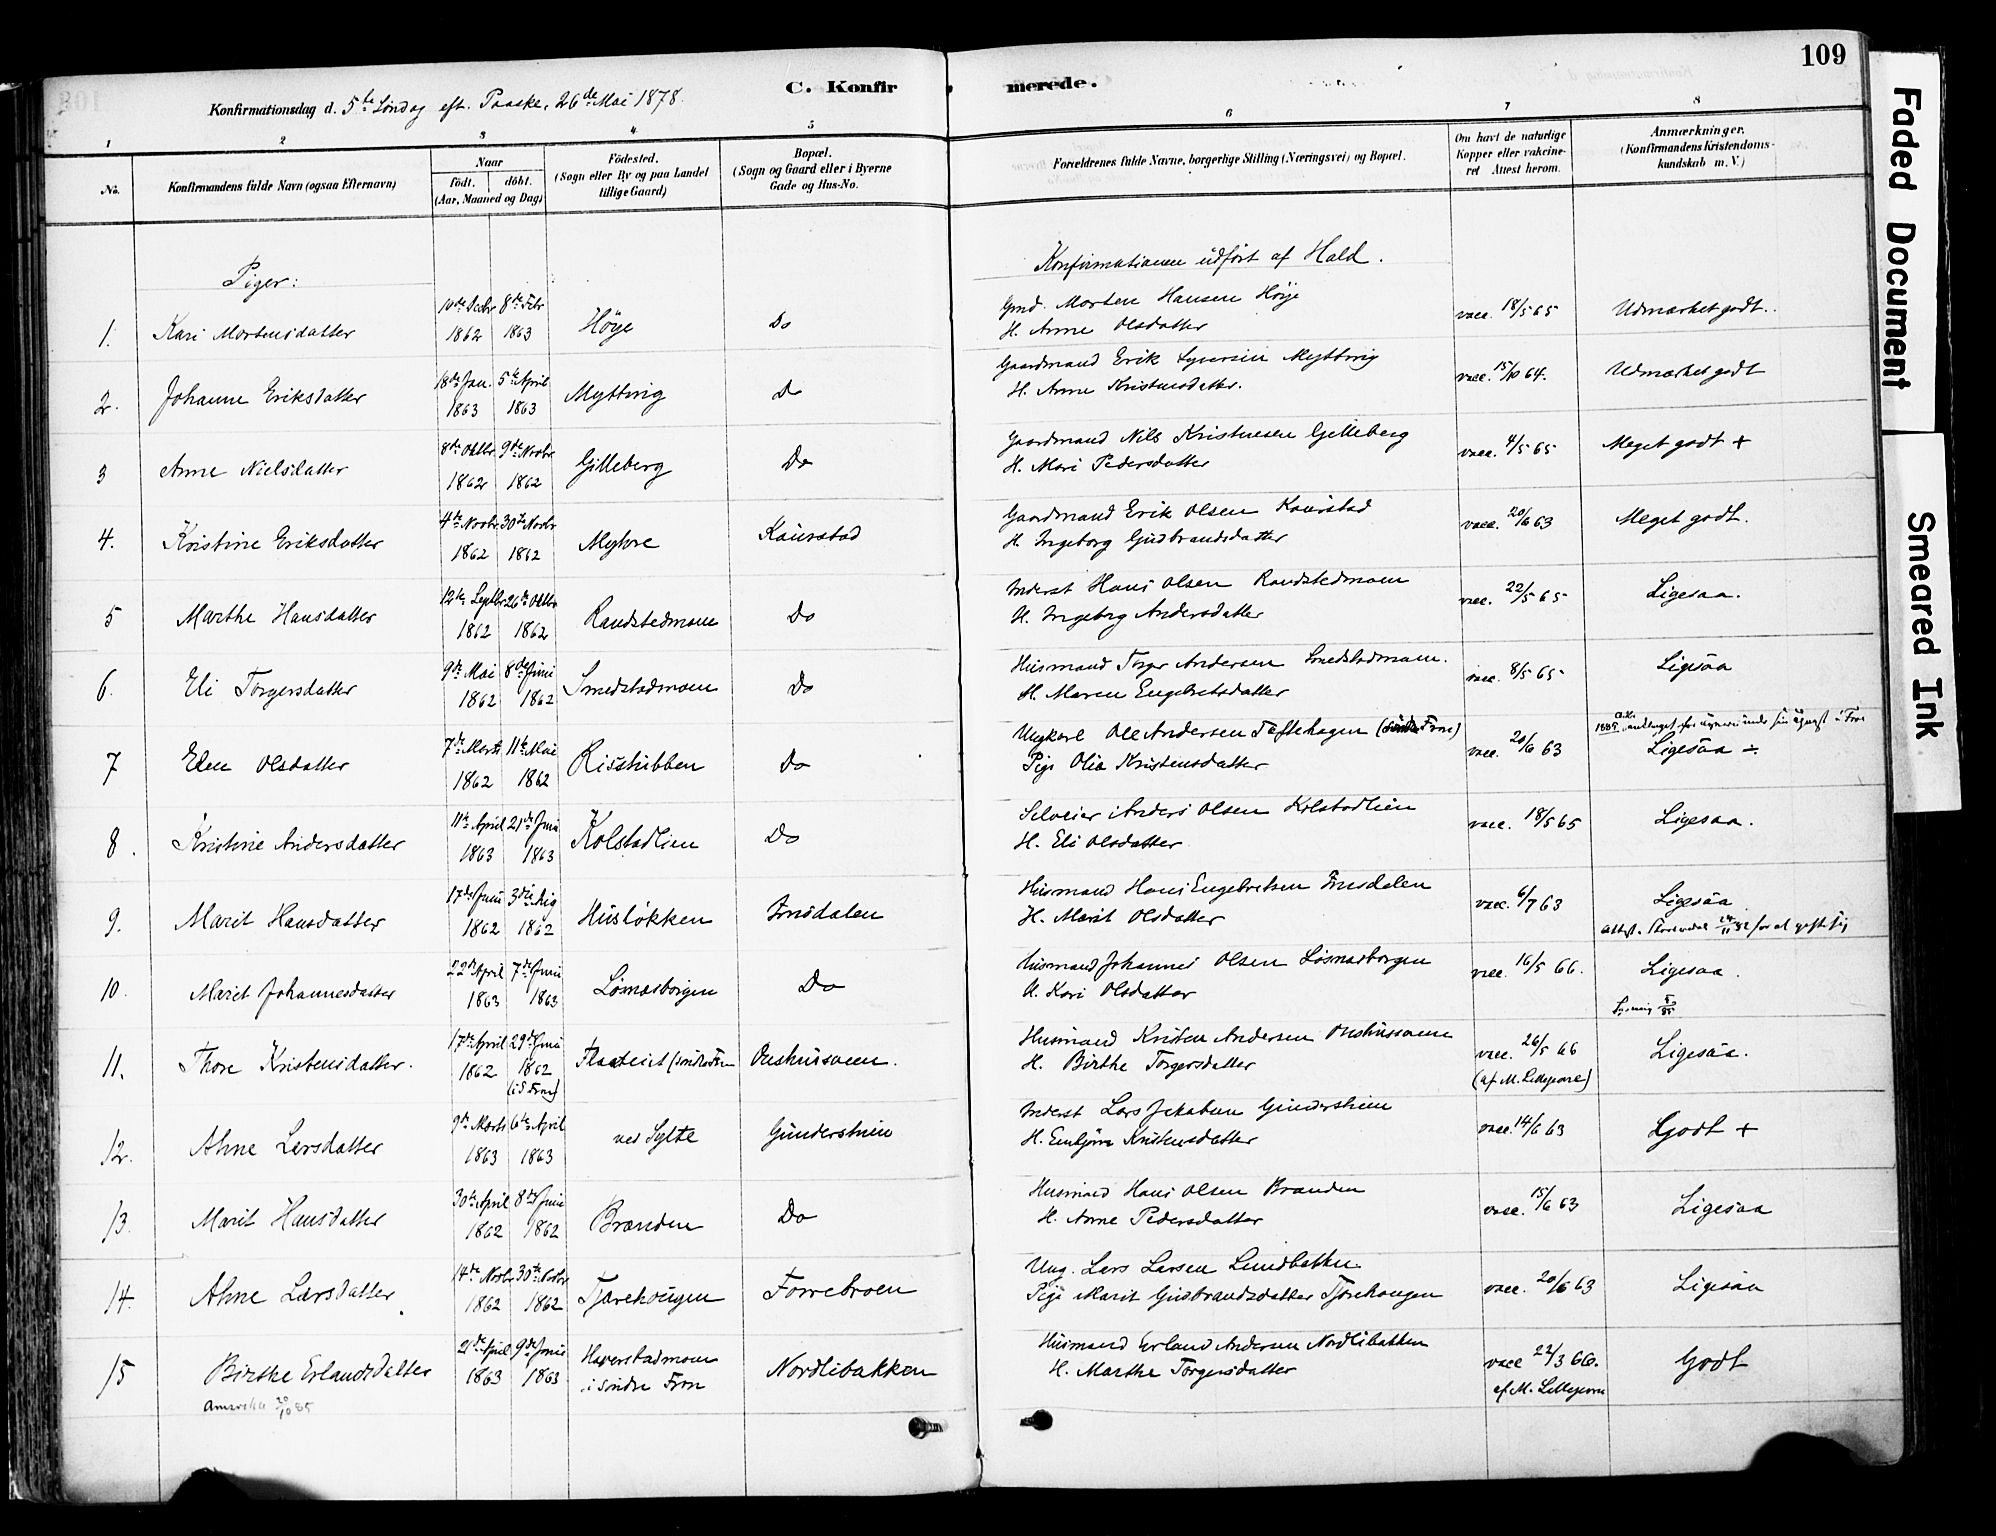 109
C. Konfirmerede.
Konfirmationsdag d. 5te Søndag eft. Paaske, 26de Mai 1878.
1 2 3 4 5 6 7 8
No.
Konfirmandens fulde Navn (ogsaa Efternavn)
Naar
födt. döbt.
(Aar, Maaned og Dag)
Födested.
(Sogn eller By og paa Landet
tillige Gaard)
Bopæl.
(Sogn og Gaard eller i Byerne
Gade og Hus-No.
Forældrenes fulde Navne, borgerlige Stilling (Næringsvei) og Bopæl.
Om havt de naturlige
Kopper eller vakcine-
ret Attest herom.
Anmærkninger.
(Konfirmandens Kristendoms-
kundskab m. V.)
Piger:
Konfirmationen udført af Hald.
1. Kari Mortensdatter 10de Decbr 1862 8de Febr 1863 Høye Do
Gmd. Morten Hansen Høye
H. Anne Olsdatter
vacc. 18/5 65 Udmærket godt.
2. Johanne Eriksdatter 18de Jan. 1863 5te April 1863 Mytting Do
Gaardmand Erik Syversen Mytting
H. Anne Kristensdatter.
vacc. 15/10 64. Udmærket godt
3 Anne Nielsdatter 8de Oktbr. 1862 9de Novbr 1862 Gilleberg Do
Gaardmand Nils Kristensen Gilleberg
H. Mari Pedersdatter
vacc. 4/5 65 Meget godt +
4. Kristine Eriksdatter 4de Novbr. 1862 30te Novbr 1862 Myhre Kaurstad
Gaardmand Erik Olsen Kaurstad
H. Ingeborg Gudbrandsdatter
vacc. 20/6 63 Meget godt.
5 Marthe Hansdatter 12te Septbr 1862 26de Oktbr 1862 Randstedmoen Do
Inderst Hans Olsen Randstedmoen
H. Ingeborg Andersdatter
vacc. 22/5 65 Ligesaa.
6. Eli Torgersdatter 9de Mai 1862 8de Juni 1862 Smedstadmoen Do
Husmand Torger Andersen Smedstadmoen.
H. Maren Engebretsdatter
vacc. 8/5 65 Ligesaa
7 Elen Olsdatter 7de Marts 1862 11te Mai 1862 Risstubben Do
Ungkarl Ole Andersen Toftehagen (Søndre Fron)
Pige Olia Kristensdatter
vacc. 20/6 63 Ligesaa ÷
8. Kristine Andersdatter 11te April 1863 21de Juni 1863 Kolstadlien Do
Selveier Anders Olsen Kolstadlien
H. Eli Olsdatter
vacc. 18/5 65 Ligesaa.
9. Marit Hansdatter 17de Juni 1862 3die Aug 1862 Husløkken
Husmand Hans Engebretsen
H. Marit Olsdatter
vacc. 6/7 63 Ligesaa
10. Marit Johannesdatter 22de April 1863 7de Juni 1863 Losnasborgen Do
Husmand Johannes Olsen Losnasborgen
H. Kari Olsdatter
vacc. 16/5 66. Ligesaa.
11. Thore Kristensdatter. 17de April 1862 29de Juni 1862 (i S. Fron)
Onshusveen.
Husmand Kristen Andersen Onshusveen
H. Birthe Torgersdatter
vacc. 26/5 66 Ligesaa.
12. Ahne Larsdatter 9de Marts 1863 6te April 1863 ved Sylte
Inderst Lars Jakobsen
H. Embjør Kristensdatter
vacc. 14/6 63 Godt +
13. Marit Hansdatter 30te April 1862 8de Juni 1862 Branden Do
Husmand Hans Olsen Branden
H. Anne Pedersdatter
vacc. 15/6 63 Ligesaa
14. Ahne Larsdatter 14de Novbr 1862 30te Novbr 1862 Tjærehougen Forrebroen
Ung. Lars Larsen Lundbakken
Pige Marit Gudbrandsdatter Tjærehougen
vacc. 20/6 63 Ligesaa
15 Birthe Erlandsdatter 21de April 1863 9de Juni 1863 Haverstadmoen
i Søndre Fron Nordlibakken
Husmand Erland Andersen Nordlibakken
H. Marthe Torgersdatter
vacc 22/3 66. Godt
Amerika 20/10 85
Faded Document
Smeared Ink